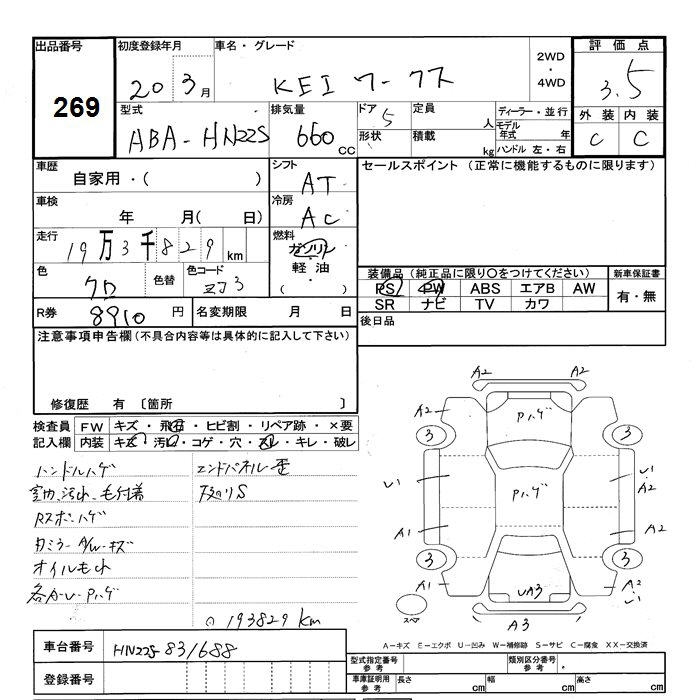 出品番号 初度登録年月 車名・グレード 2WD・4WD 評価点
269 20 3月 KEI ワークス 3.5
外装 内装
C C
型式 排気量 ドア 定員 ディーラー・並行
ABA-HN22S 660 cc 5 人 モデル年式 年
形状 積載 kg ハンドル 左・右
車歴 シフト セールスポイント (正常に機能するものに限ります)
自家用・( ) AT
車検 冷房
年 月( 日) AC
走行 燃料
19万3千829km ガソリン
軽油
( )
色 色替 色コード 装備品 (純正品に限り○をつけてください) 新車保証書
クロ ZJ3 PS PW ABS エアB AW 有・無
SR ナビ TV カワ
R券 8910 円 名変期限 月 日 後日品
注意事項申告欄 (不具合内容等は具体的に記入して下さい)
修復歴 有 〔箇所 〕
検査員 FW キズ・飛石・ヒビ割・リペア跡・×要
記入欄 内装 キズ・汚れ・コゲ・穴・スレ・キレ・破レ
ハンドルハゲ エンドパネル歪
室内汚れ、毛付着 下廻りS
Rスポ.ハゲ
オイルもれ
193829 km
A2 A2
A2 Pハゲ
3 3
U1 Pハゲ U1 A2
A1 A2
3 3
A1 UA3 A2 U1
スペア A3
A-キズ E-エクボ U-凹み W-補修跡 S-サビ C-腐食 XX-交換済
車台番号 HN22S-831688 型式指定番号 参考 類別区分番号 参考
登録番号 車庫証明用 参考 長さ cm 幅 cm 高さ cm